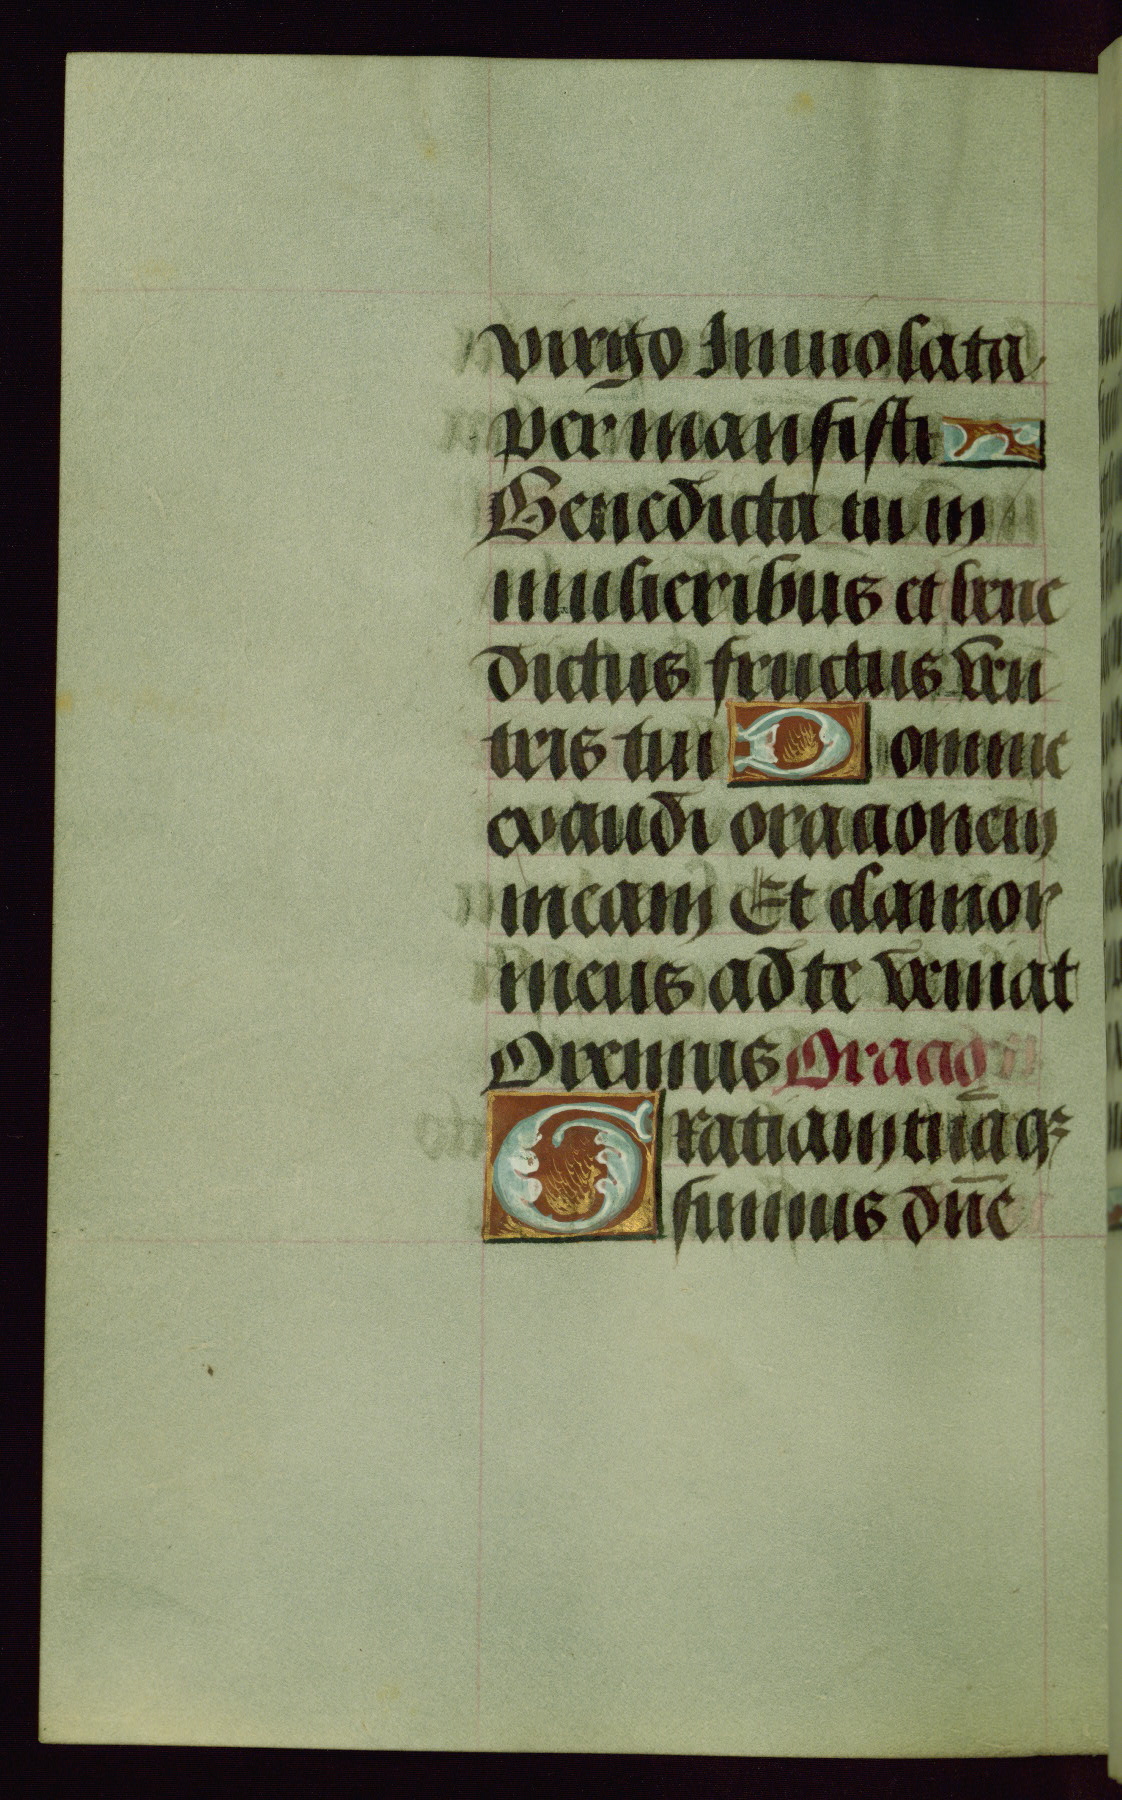 virgo Inuiolata
permansisti
Benedicta tu in
mulieribus et bene
dictus fructus ven
tris tui Domine
exaudi oracionem
meam Et clamor
meus ad te veniat
Oremus Oracio
Gratiam tuā q̄
sumus dn̄e